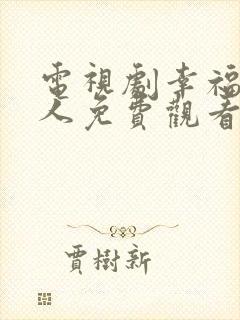 電視劇幸福
人免費觀看
賈樹新